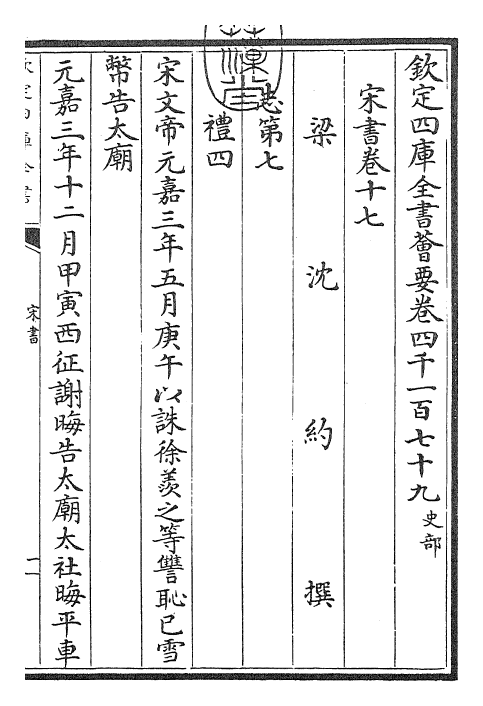 欽定四庫全書薈要卷四千一百七十九 史部
宋書卷十七
梁 沈 約 撰
志第七
禮四
宋文帝元嘉三年五月庚午以誅徐羨之等讐恥已雪
幣告太廟
元嘉三年十二月甲寅西征謝晦告太廟太社晦平車
欽定四庫全書
宋書
一